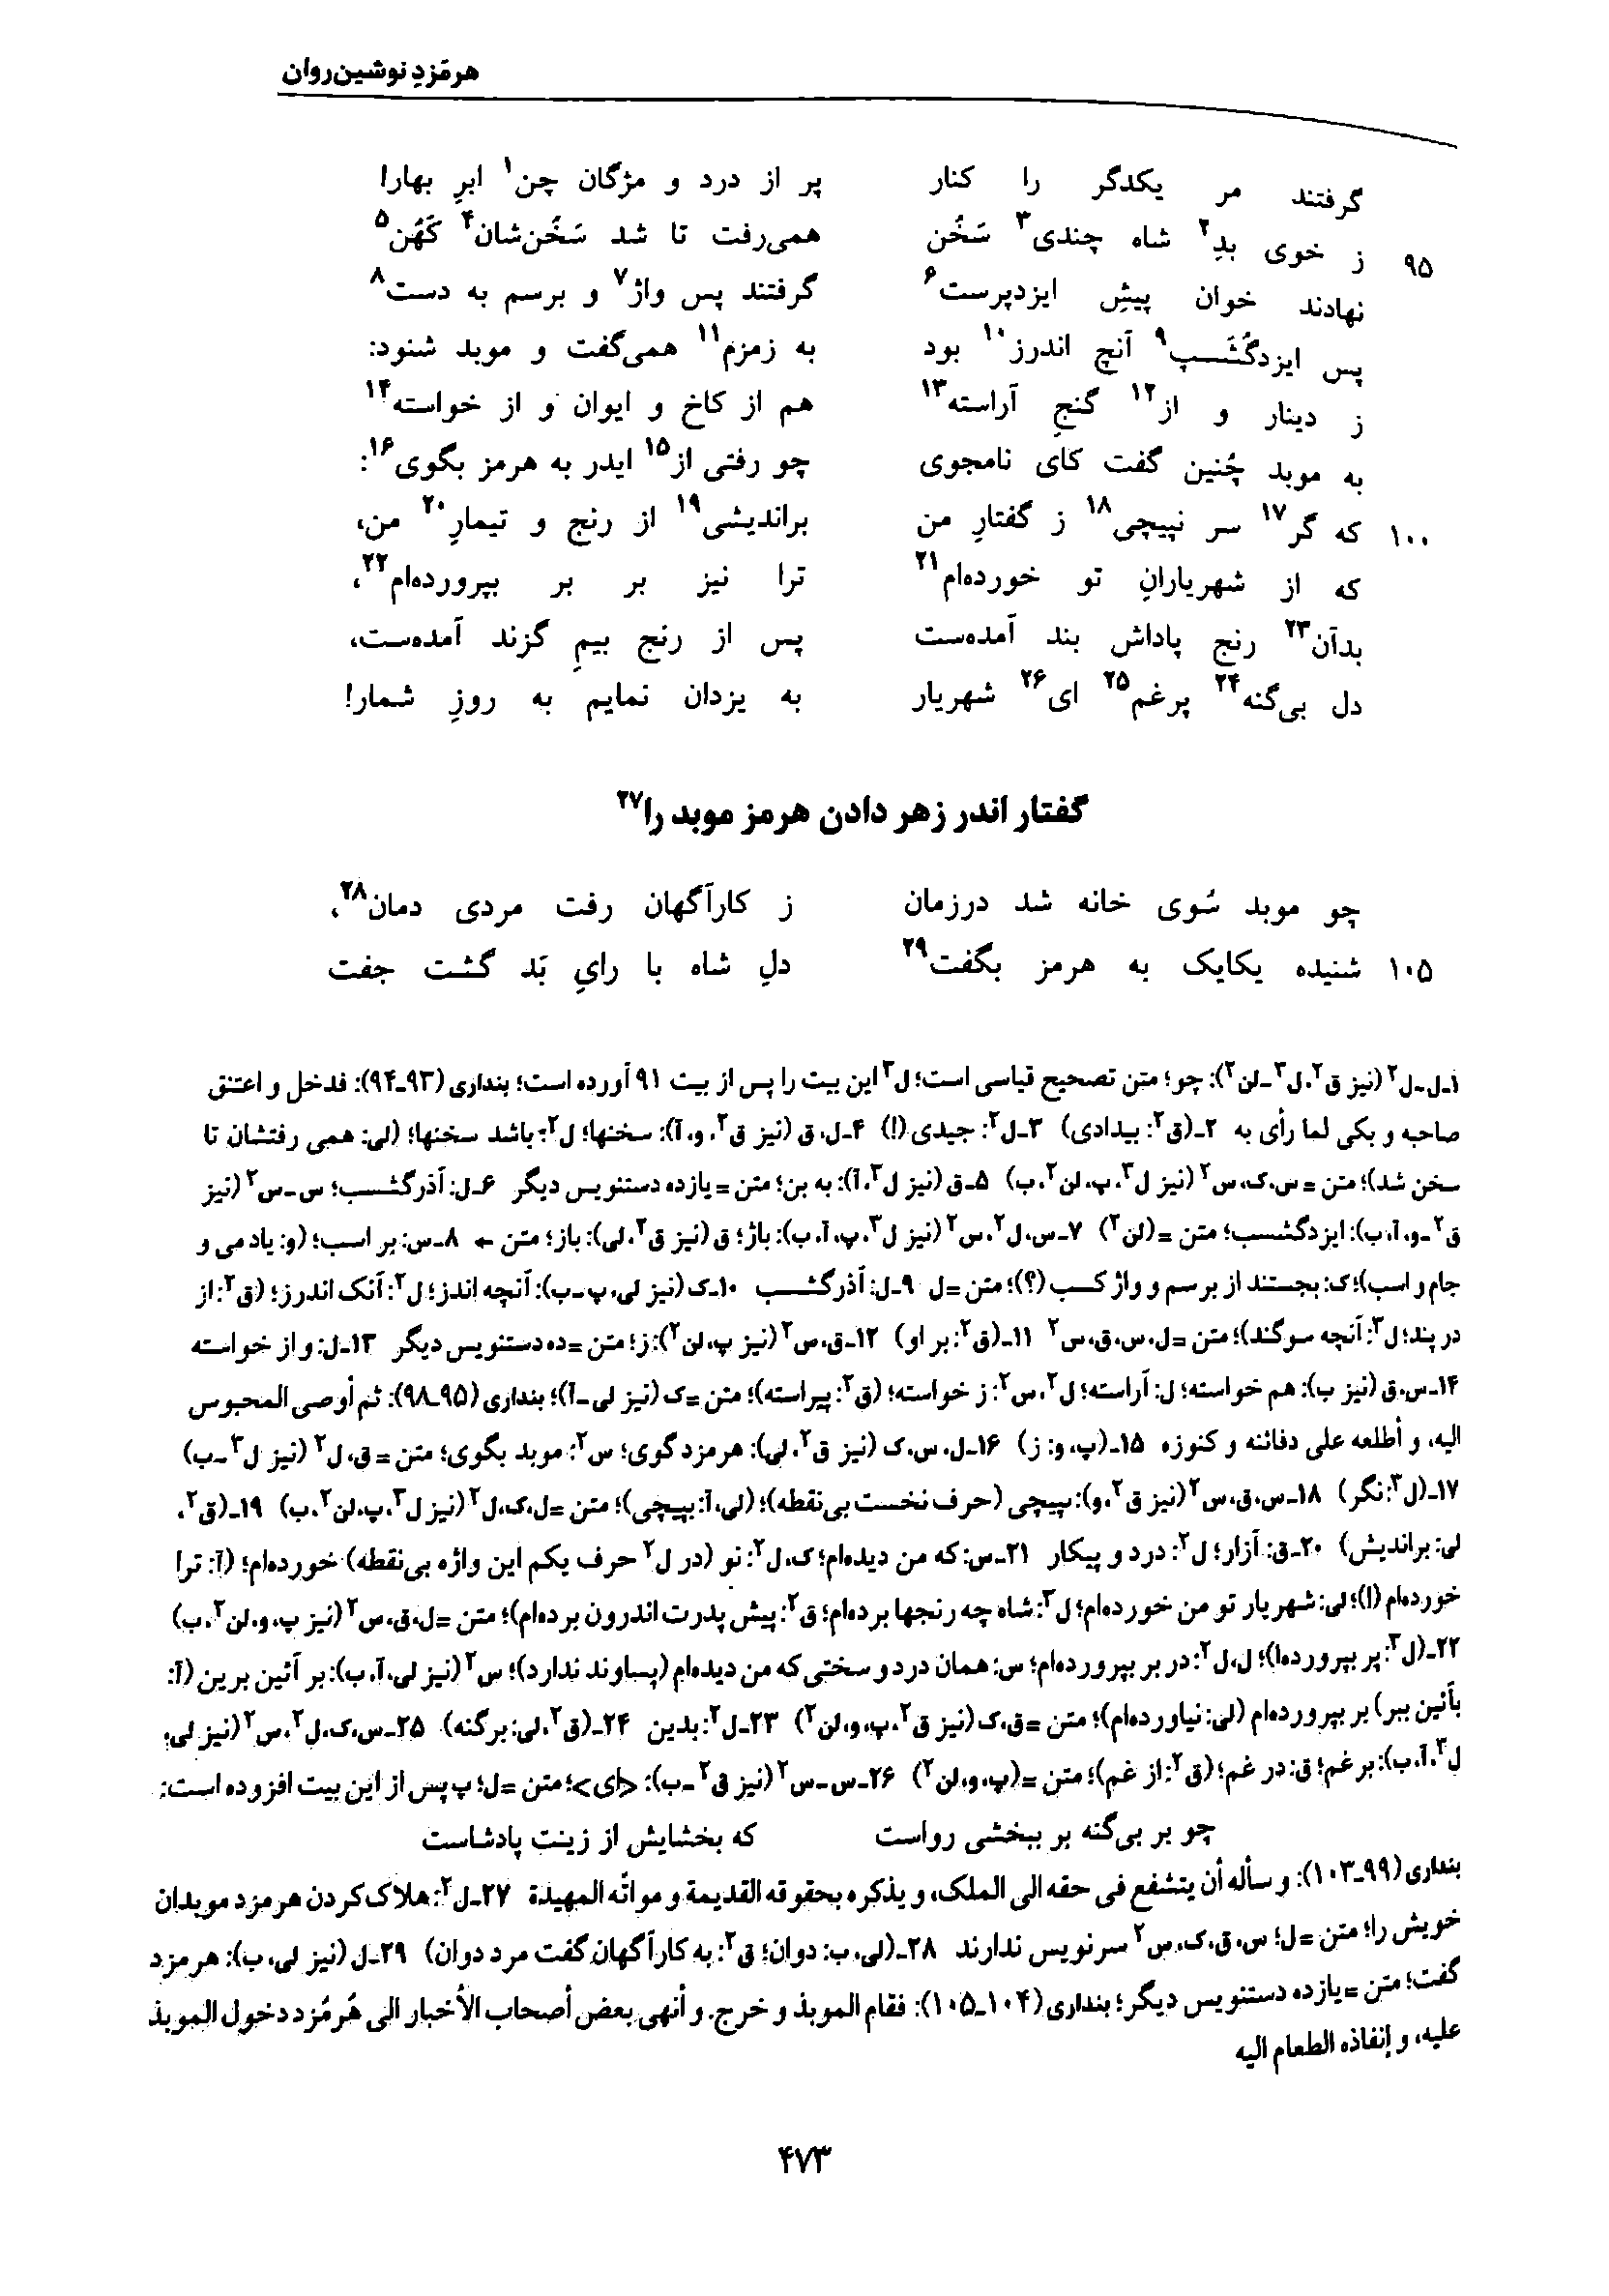 هرمَزدِ نوشین‌روان
گرفتند مر یکدگر را کنار پر از درد و مژگان چن۱ ابرِ بهار!
۹۵ ز خوی بدِ۲ شاه چندی۳ سَخُن همی‌رفت تا شد سَخُن‌شان۴ کَهُن۵
نهادند خوان پیشِ ایزدپرست۶ گرفتند پس واژ۷ و برسم به دست۸
پس ایزدگُشَسپ۹ آنچ اندرز۱۰ بود به زمزم۱۱ همی‌گفت و موبد شنود:
ز دینار و از۱۲ گنجِ آراسته۱۳ هم از کاخ و ایوان و از خواسته۱۴
به موبد چُنین گفت کای نامجوی چو رفتی از۱۵ ایدر به هرمز بگوی۱۶:
۱۰۰ که گر۱۷ سر نپیچی۱۸ ز گفتارِ من براندیشی۱۹ از رنج و تیمارِ۲۰ من،
که از شهریارانِ تو خورده‌ام۲۱ ترا نیز بر بر بپرورده‌ام۲۲،
بدآن۲۳ رنج پاداش بند آمده‌ست پس از رنج بیمِ گزند آمده‌ست،
دل بی‌گنه۲۴ پرغم۲۵ ای۲۶ شهریار به یزدان نمایم به روزِ شمار!
گفتار اندر زهر دادن هرمز موبد را۲۷
چو موبد سُوی خانه شد درزمان ز کارآگهان رفت مردی دمان۲۸،
۱۰۵ شنیده یکایک به هرمز بگفت۲۹ دلِ شاه با رایِ بَد گشت جفت
۱ـ‌ل‌ـ‌ل۲ (نیز ق۲، ل۳ ـ‌لن۲): چو؛ متن تصحیح قیاسی است؛ ل۳ این بیت را پس از بیت ۹۱ آورده است؛ بنداری (۹۳ـ۹۴): فدخل و اعتنق
صاحبه و بکی لما رأی به ۲ـ(ق۲: بیدادی) ۳ـ‌ل۲: جیدی (!) ۴ـ‌ل، ق (نیز ق۲، و، آ): سخنها؛ ل۲: باشد سخنها؛ (لی: همی رفتشان تا
سخن شد)؛ متن = س، ک، س۲ (نیز ل۳، پ، لن۲، ب) ۵ـ‌ق (نیز ل۳، آ): به بن؛ متن = یازده دستنویس دیگر ۶ـ‌ل: آذرگشسب؛ س‌ـ‌س۲ (نیز
ق۲ـ‌و، آ، ب): ایزدگشسب؛ متن = (لن۲) ۷ـ‌س، ل۲، س۲ (نیز ل۳، پ، آ، ب): باژ؛ ق (نیز ق۲، لی): باز؛ متن ← ۸ـ‌س: بر اسب؛ (و: یاد می و
جام و اسب)؛ ک: بجستند از برسم و واژ کسب (؟)؛ متن = ل ۹ـ‌ل: آذرگشسب ۱۰ـ‌ک (نیز لی، پ‌ـ‌ب): آنچه اندز؛ ل۲: آنک اندرز؛ (ق۲: از
در پند؛ ل۳: آنچه سوگند)؛ متن = ل، س، ق، س۲ ۱۱ـ(ق۲: بر او) ۱۲ـ‌ق، س۲ (نیز پ، لن۲): ز؛ متن = ده دستنویس دیگر ۱۳ـ‌ل: و از خواسته
۱۴ـ‌س، ق (نیز ب): هم خواسته؛ ل: آراسته؛ ل۲، س۲: ز خواسته؛ (ق۲: پیراسته)؛ متن = ک (نیز لی‌ـ‌آ)؛ بنداری (۹۵ـ۹۸): ثم أوصی المحبوس
الیه، و أطلعه علی دفائنه و کنوزه ۱۵ـ(پ، و: ز) ۱۶ـ‌ل، س، ک (نیز ق۲، لی): هرمزد گوی؛ س۲: موبد بگوی؛ متن = ق، ل۲ (نیز ل۳ ـ‌ب)
۱۷ـ(ل۳: نگر) ۱۸ـ‌س، ق، س۲ (نیز ق۲، و): بپیچی (حرف نخست بی‌نقطه)؛ (لی، آ: بپیچی)؛ متن = ل، ک، ل۲ (نیز ل۳، پ، لن۲، ب) ۱۹ـ(ق۲،
لی: براندیش) ۲۰ـ‌ق: آزار؛ ل۲: درد و پیکار ۲۱ـ‌س: که من دیده‌ام؛ ک، ل۲: نو (در ل۲ حرف یکم این واژه بی‌نقطه) خورده‌ام؛ (آ: ترا
خورده‌ام (!)؛ لی: شهریار تو من خورده‌ام؛ ل۳: شاه چه رنجها برده‌ام؛ ق۲: پیش پدرت اندرون برده‌ام)؛ متن = ل، ق، س۲ (نیز پ، و، لن۲، ب)
۲۲ـ(ل۳: پر بپرورده‌ا)؛ ل، ل۲: در بر بپرورده‌ام؛ س: همان درد و سختی که من دیده‌ام (پساوند ندارد)؛ س۲ (نیز لی، آ، ب): بر آئین برین (آ:
بآئین ببر) بر بپرورده‌ام (لی: نیاورده‌ام)؛ متن = ق، ک (نیز ق۲، پ، و، لن۲) ۲۳ـ‌ل۲: بدین ۲۴ـ(ق۲، لی: برگنه) ۲۵ـ‌س، ک، ل۲، س۲ (نیز لی،
ل۳، آ، ب): بر غم؛ ق: در غم؛ (ق۲: از غم)؛ متن = (پ، و، لن۲) ۲۶ـ‌س‌ـ‌س۲ (نیز ق۲ ـ‌ب): <ای>؛ متن = ل؛ پ پس از این بیت افزوده است:
چو بر بی‌گنه بر ببخشی رواست که بخشایش از زینت پادشاست
بنداری (۹۹ـ۱۰۳): و سأله أن یتشفع فی حقه الی الملک، و یذکره بحقوقه القدیمة و مواتّه المهیدة ۲۷ـ‌ل۲: هلاک کردن هرمزد موبدان
خویش را؛ متن = ل؛ س، ق، ک، س۲ سرنویس ندارند ۲۸ـ(لی، ب: دوان؛ ق۲: به کارآگهان گفت مرد دوان) ۲۹ـ‌ل (نیز لی، ب): هرمزد
گفت؛ متن = یازده دستنویس دیگر؛ بنداری (۱۰۴ـ۱۰۵): فقام الموبذ و خرج. و أنهی بعض أصحاب الأخبار الی هُرمُزد دخول الموبذ
علیه، و إنفاذه الطعام الیه
۴۷۳